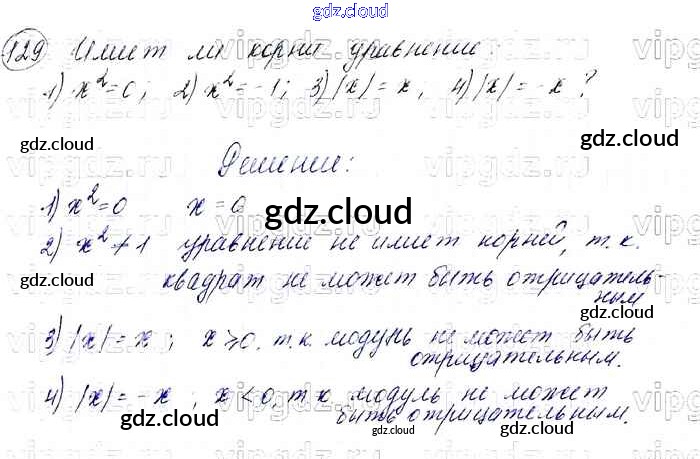 gdz.cloud
129 Имеет ли корни уравнение:
1) x²=0; 2) x²=-1; 3) |x|=x, 4) |x|=-x?
gdz.cloud
gdz.cloud
Решение:
gdz.cloud
1) x²=0 x=0
gdz.cloud
2) x²≠1 уравнение не имеет корней, т.к.
gdz.cloud
квадрат не может быть отрицатель-
ным
gdz.cloud
3) |x|=x; x⩾0. т.к. модуль не может быть
отрицательным.
gdz.cloud
4) |x|=-x, x<0, т.к модуль не может
быть отрицательным.
gdz.cloud
gdz.cloud
gdz.cloud